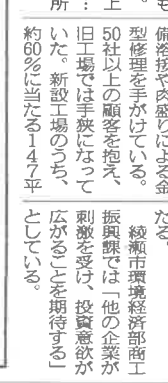 備溶接や肉盛による金
型修理を手がけている。
50社以上の顧客を抱え、
旧工場では手狭になって
いた。新設工場のうち、
約60%に当たる147平
たる。
綾瀬市環境経済部商工
振興課では「他の企業が
刺激を受け、投資意欲が
広がることを期待する」
としている。